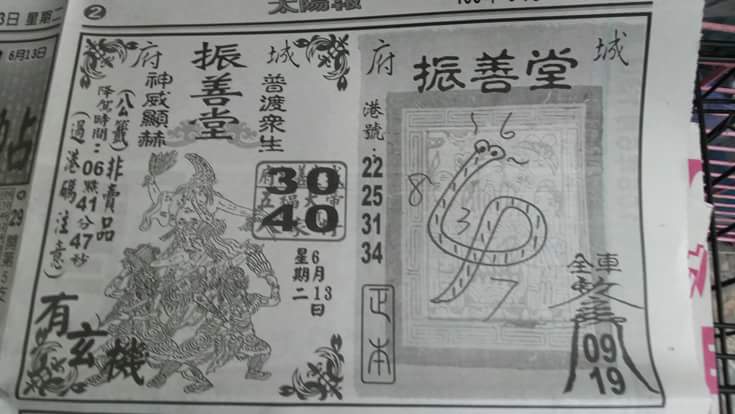 ❷
太陽報
3日 星期二
6月13日
府 振善堂 城
神威顯赫
普渡眾生
(公籤)非賣品
降駕時間:06點41分47秒
(過港碼注意)
30
40
6月13日
星期二
有玄機
府 城
振善堂
港號:
22
25
31
34
正本
5 6
8
3
7
全車
09
19
29